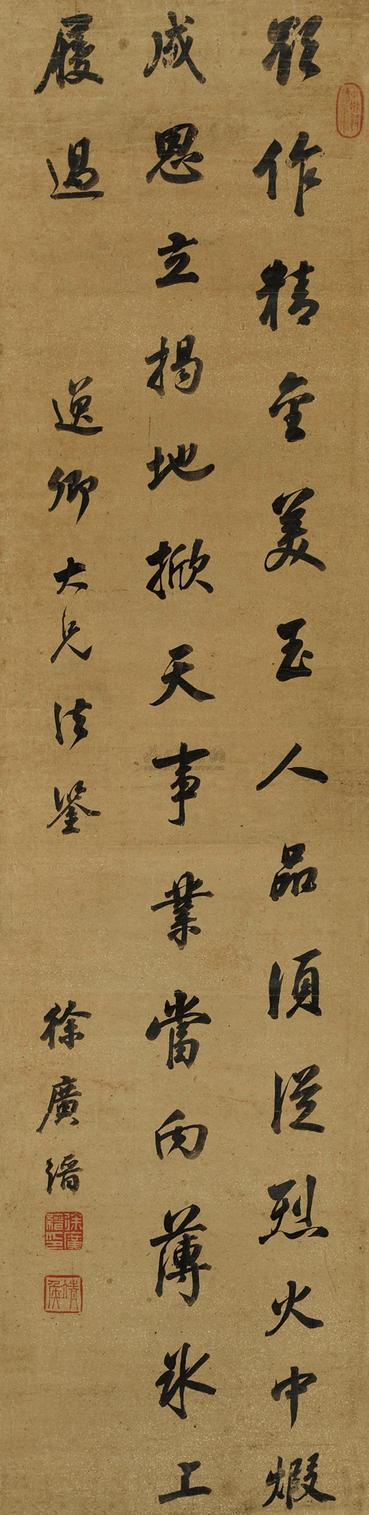 欲作精金美玉人品須從烈火中煆
成思立揭地掀天事業當向薄氷上
履過
逸卿大兄法鑒
徐廣縉
徐廣縉印